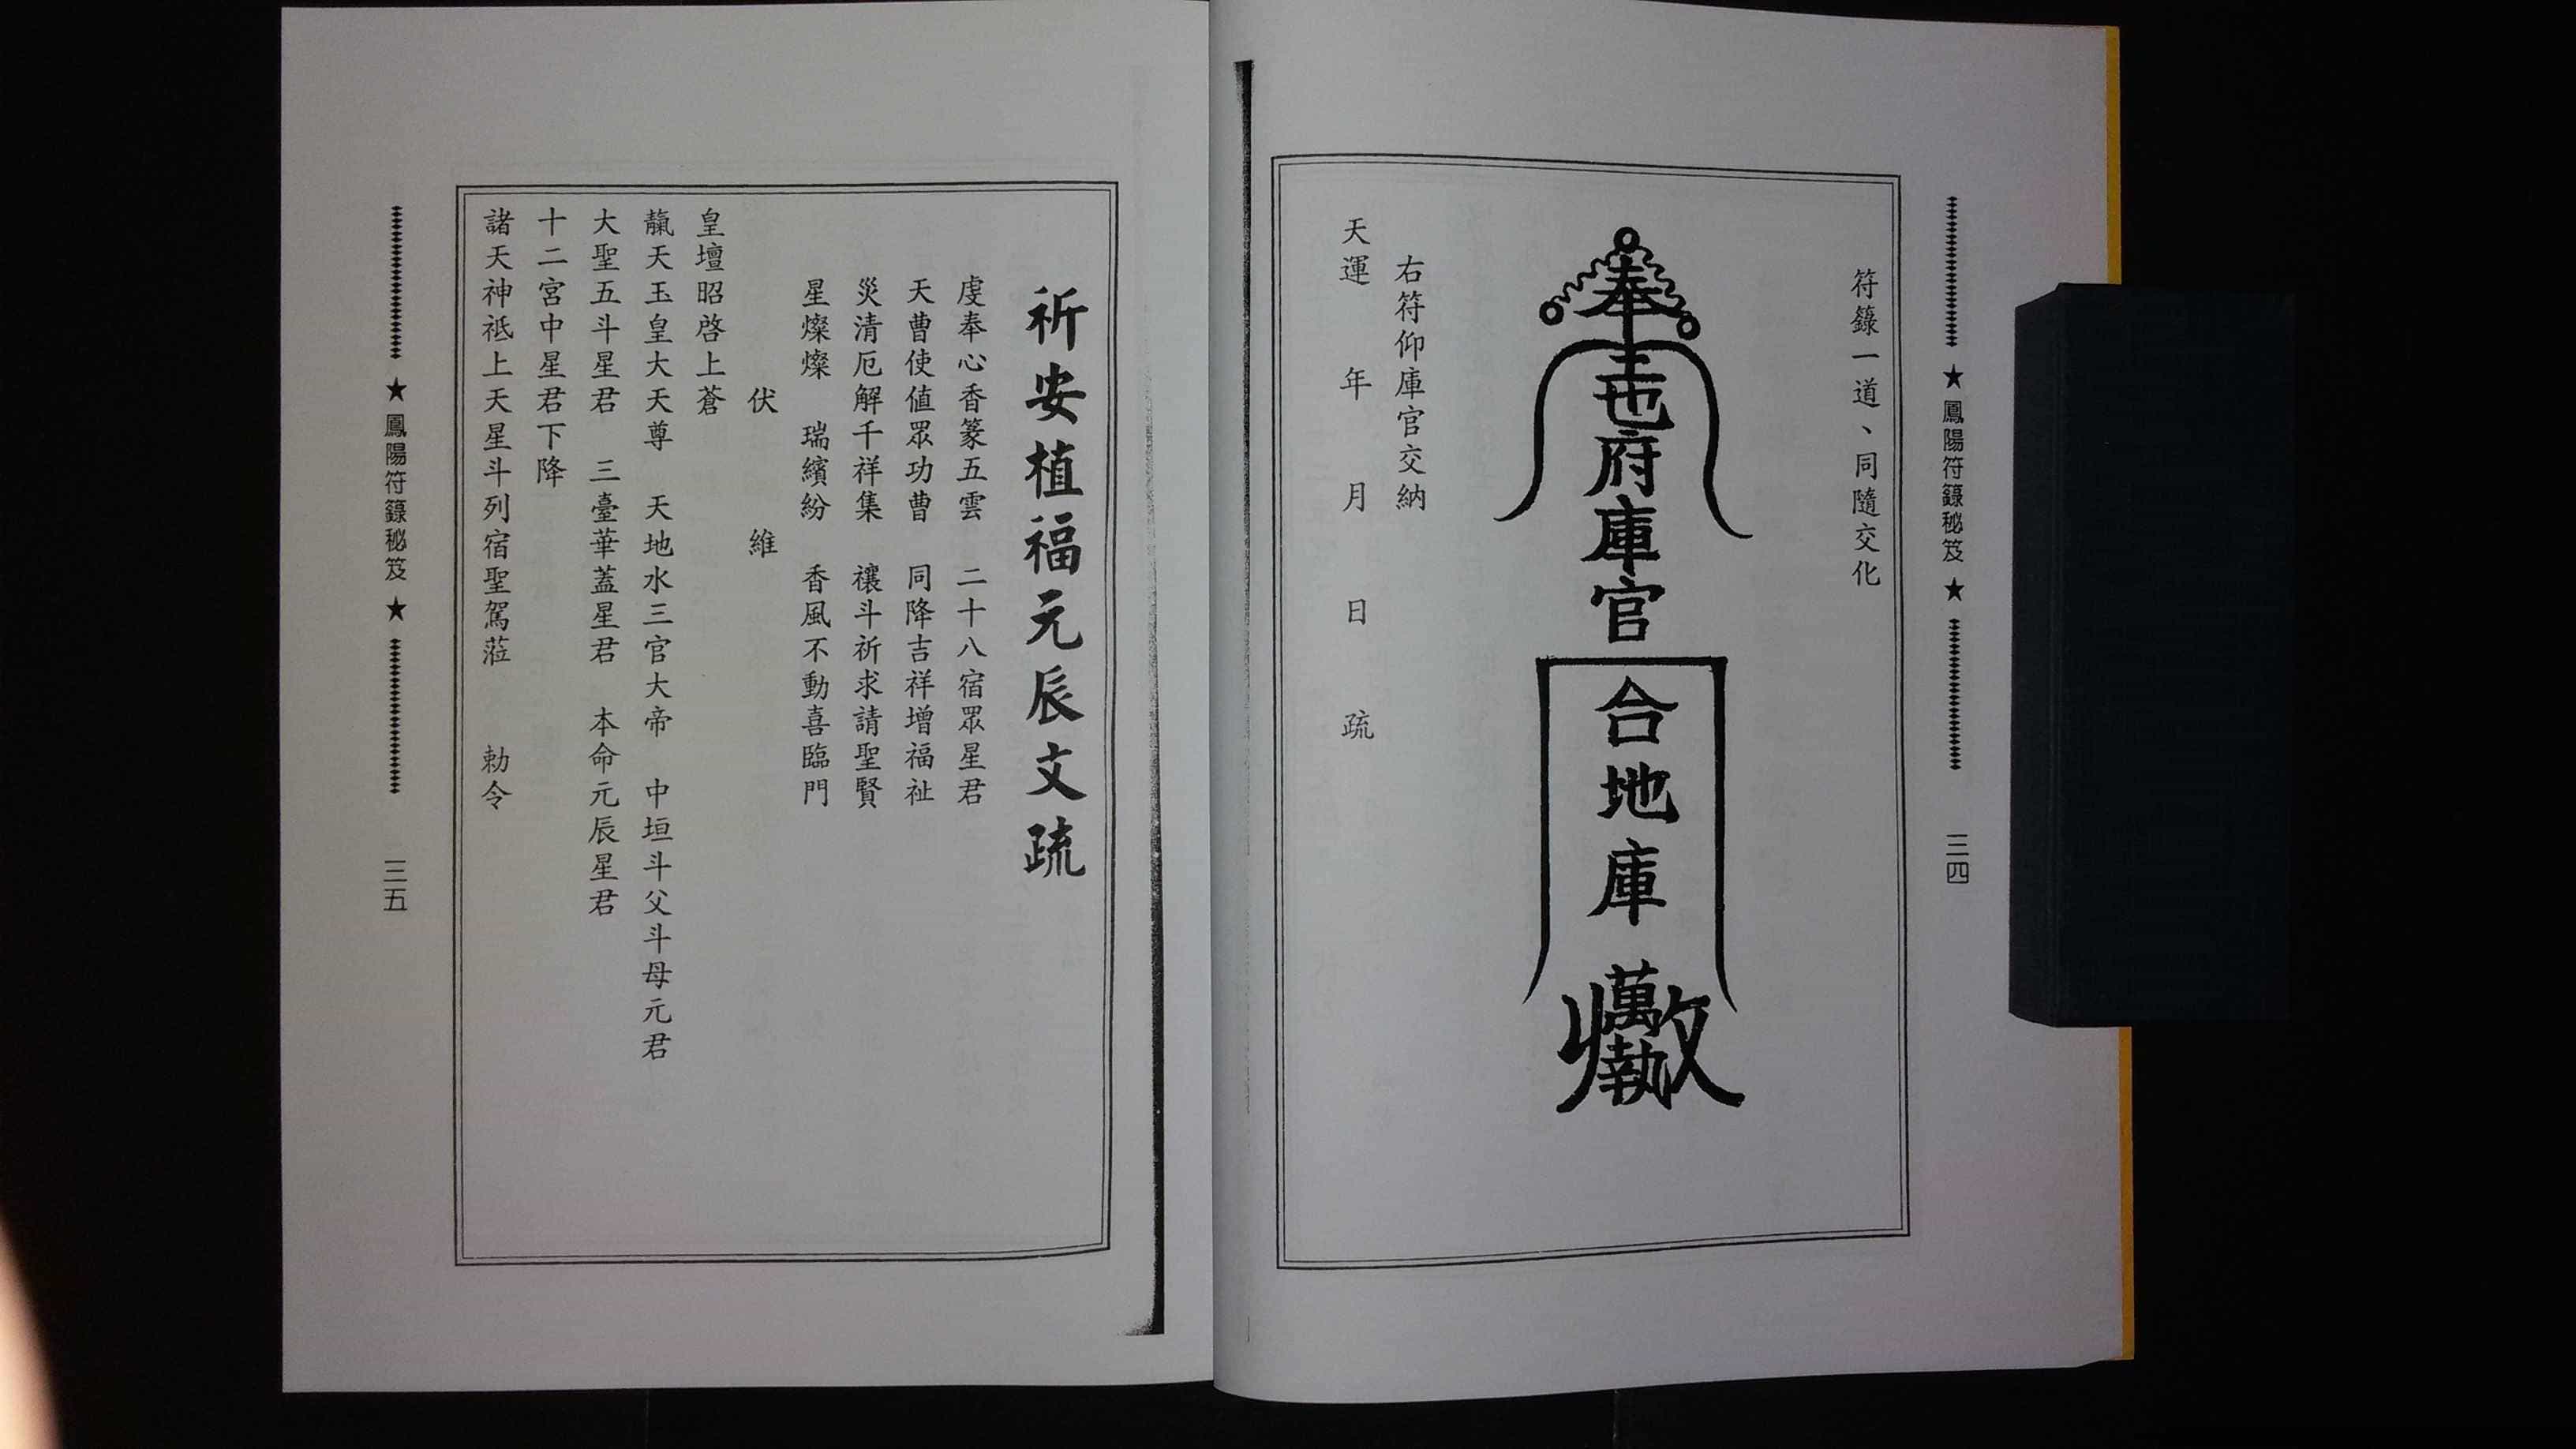 ★鳳陽符籙秘笈★ 三四
符籙一道、同隨交化
奉
地府庫官
合地庫
右符仰庫官交納
天運 年 月 日 疏
祈安植福元辰文疏
虔奉心香篆五雲 二十八宿眾星君
天曹使值眾功曹 同降吉祥增福祉
災清厄解千祥集 禳斗祈求請聖賢
星燦燦 瑞繽紛 香風不動喜臨門
伏 維
皇壇昭啓上蒼
靝天玉皇大天尊 天地水三官大帝 中垣斗父斗母元君
大聖五斗星君 三臺華蓋星君 本命元辰星君
十二宮中星君下降
諸天神祇上天星斗列宿聖駕蒞 勅令
★鳳陽符籙秘笈★ 三五